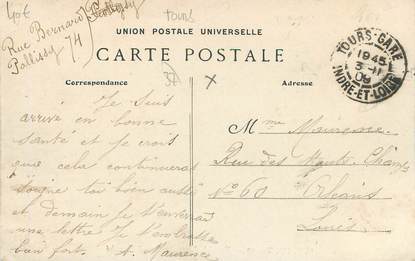 40€
tours
Rue Bernard
Palissy 14
UNION POSTALE UNIVERSELLE
CARTE POSTALE
Correspondance
Adresse
TOURS-GARE
1945
3-1
09
INDRE-ET-LOIRE
Je suis
arrivé en bonne
santé et je crois
que cela continueras
soigne toi bien aussi
et demain je t'enverrais
une lettre Je t'embrasse
bien fort. A. Maurence
Mme Maurence
Rue des Hauts-Champs
No 60 Orléans
Loiret